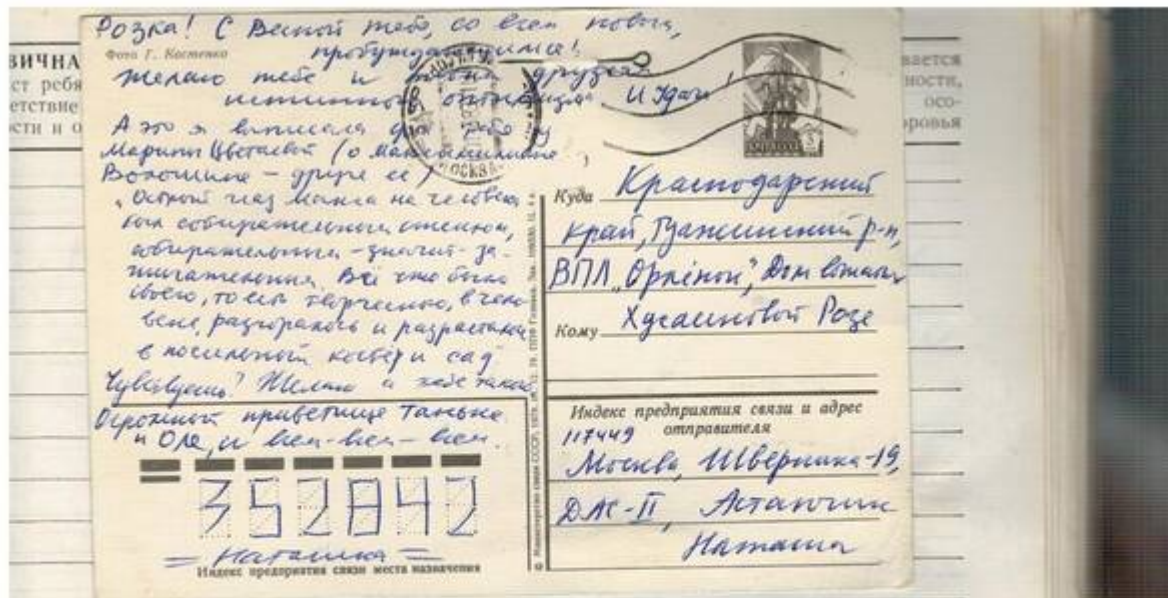 Розка! С Весной тебя, со всем новым,
пробуждающимся!
Фото Г. Костенко
Желаю тебе и твоим друзьям
истинного оптимизма и удачи!
А это я выписала для тебя у
Марины Цветаевой (о Максимилиане
Волошине – друге её)
"Острый глаз Макса на человека
был собирательным стеклом,
собирательным – значит – за-
жигательным. Всё что было
своего, то есть творческого, в чело-
веке, разгоралось и разрасталось
в посильный костёр и сад
Чувствуешь? Желаю и тебе
Огромный приветище Таньке
и Оле, и всем-всем-всем.
352842
= Наташка =
Индекс предприятия связи места назначения
МОСКВА
Куда Краснодарский
край, Туапсинский р-н,
ВПЛ "Орлёнок", Дом вожатых
Кому Хусаиновой Розе
Индекс предприятия связи и адрес
отправителя
117449
Москва, Шверника-19,
ДАС-II,
Наташа
ВИЧНА
ст ребя
етствие
сти и о
вается
ности,
осо-
оровья